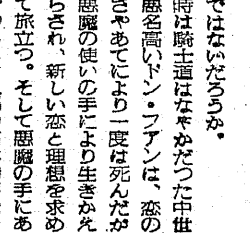 ではないだろうか。
時は騎士道はなやかだった中世
悪名高いドン・ファンは、恋の
さやあてにより一度は死んだが
悪魔の使いの手により生きかえ
らされ、新しい恋と理想を求め
て旅立つ。そして悪魔の手にあ